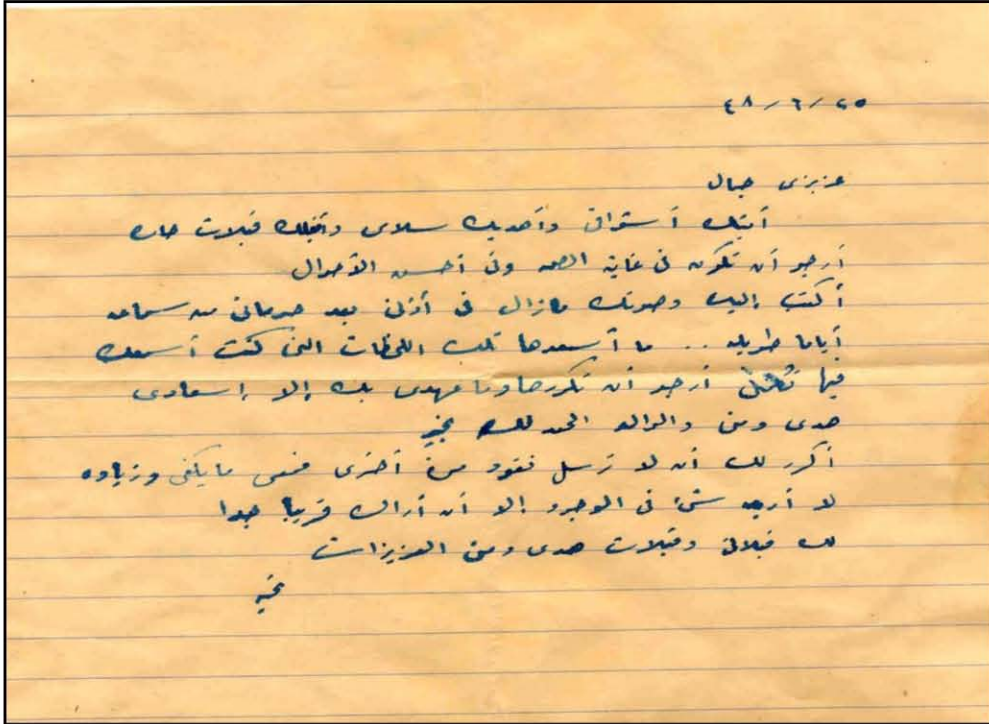 ٢٥/٦/٤٨
عزيزى جمال
أبثك أشواقى وأهديك سلامى وأقبلك قبلات حاره
أرجو أن تكون فى غاية الصحه وفى أحسن الأحوال
أكتب إليك وصوتك مازال فى أذنى بعد حرمانى من سماعه
أياما طويله .. ما أسعدها تلك اللحظات التى كنت أسمعك
فيها أرجو أن تكررها وما عهدى بك إلا إسعادى
هدى ومنى والوالد الحمد لله بخير
أكرر لك أن لا ترسل نقود مرة أخرى فمعى ما يكفى وزياده
لا أريد شئ فى الوجود إلا أن أراك قريبا جدا
لك قبلاتى وقبلات هدى ومنى العزيزات